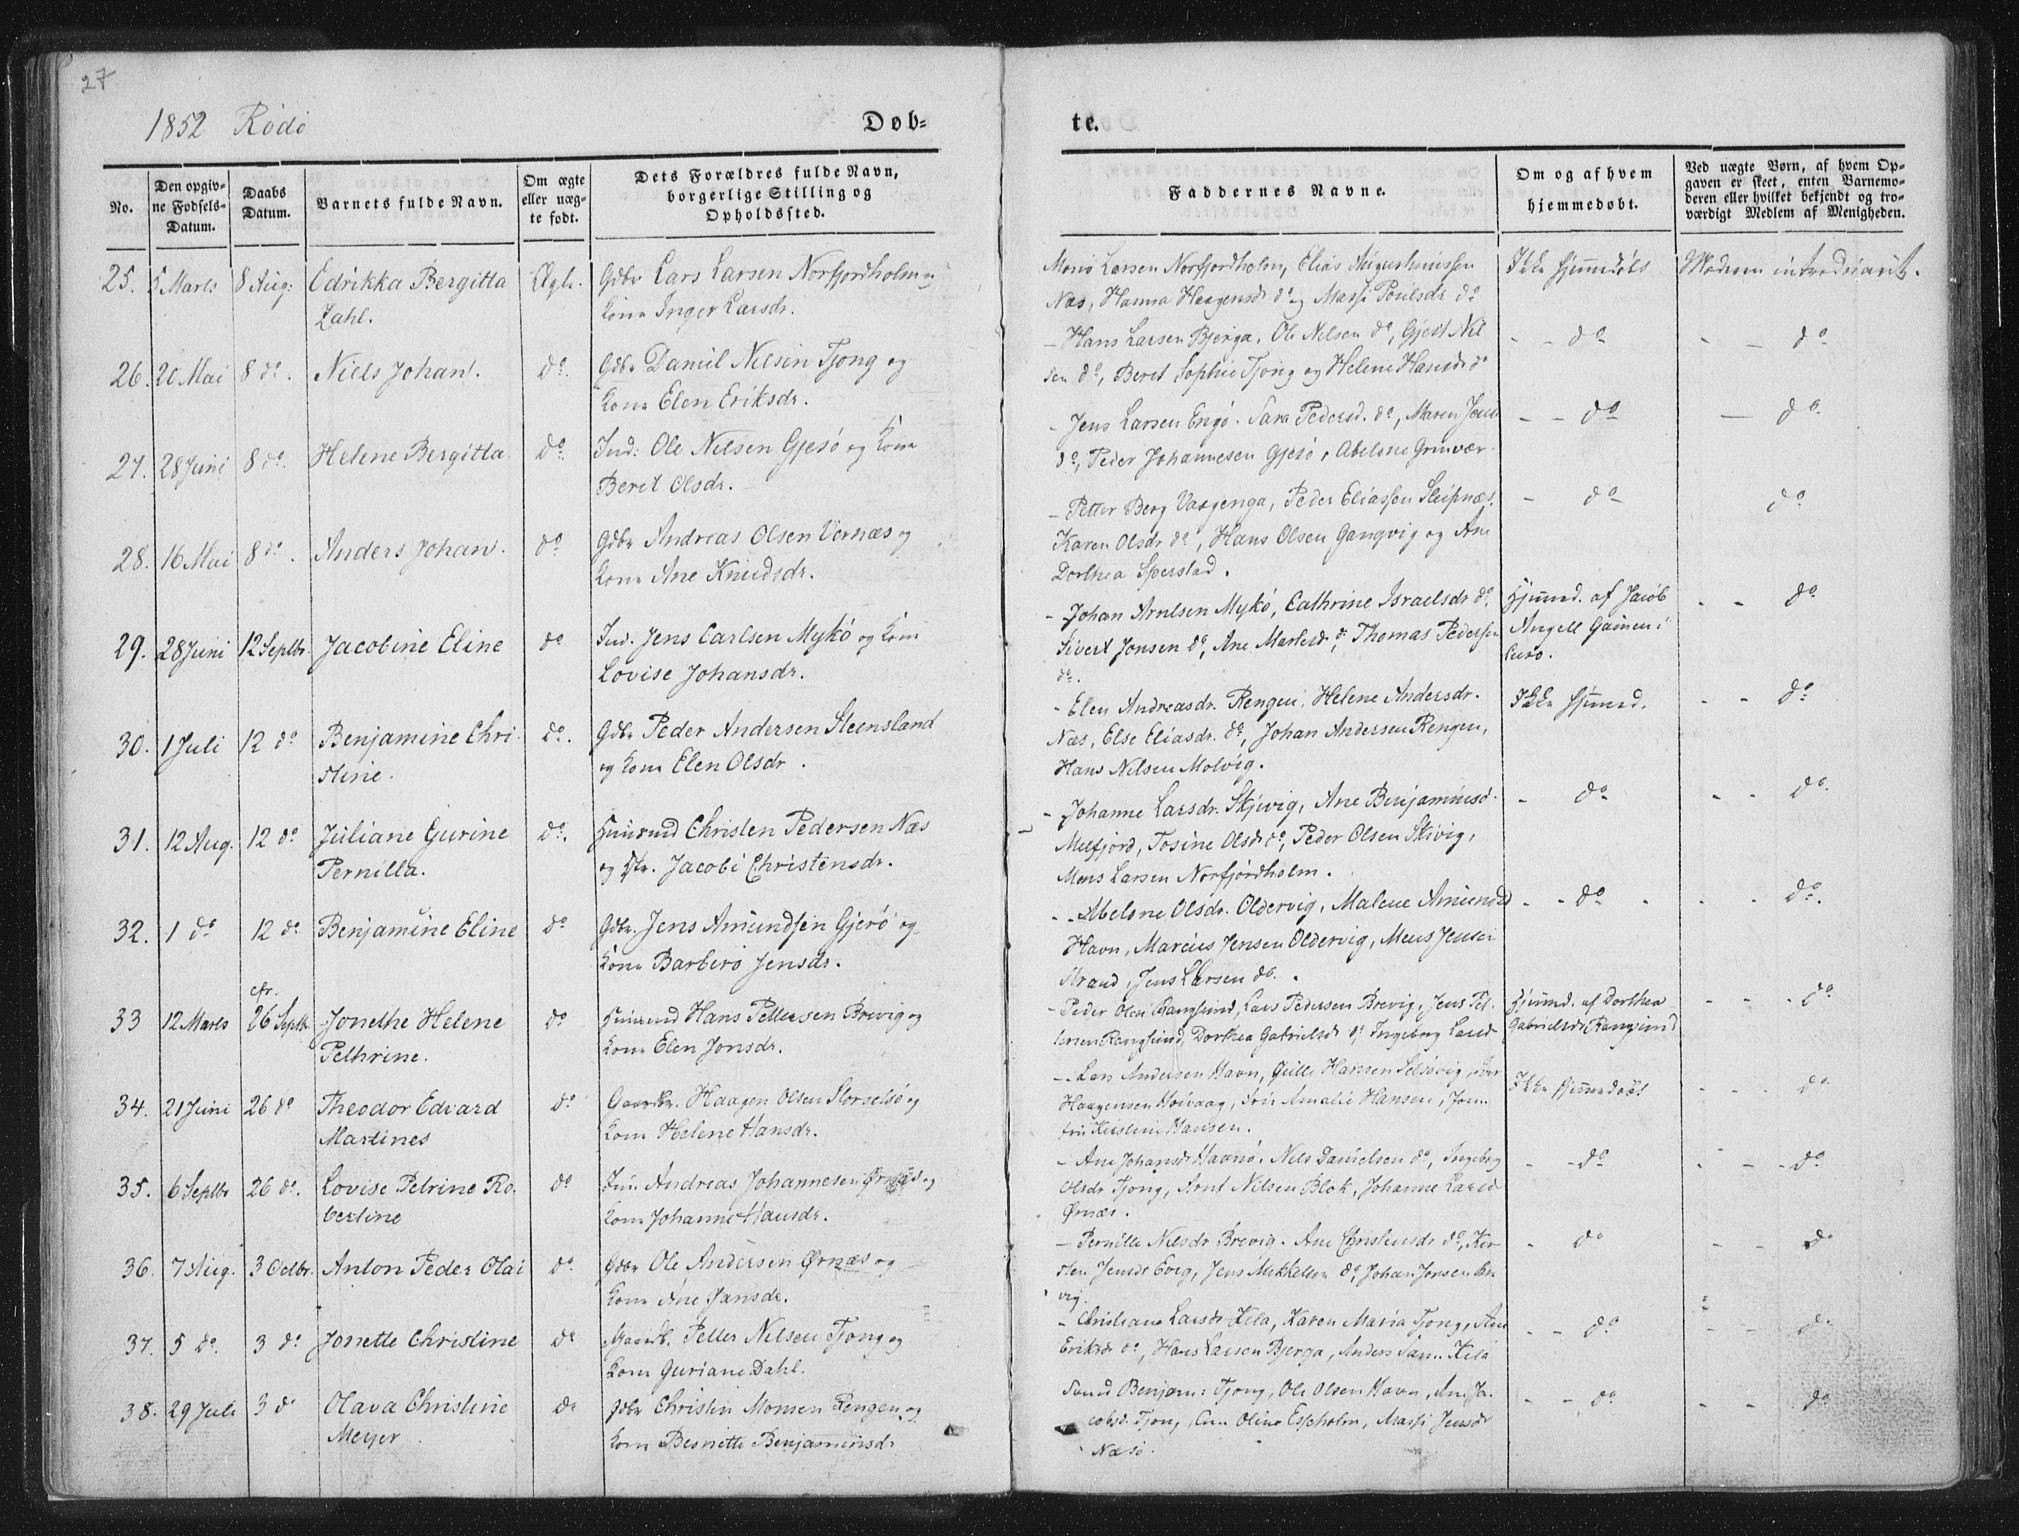 27
1852 Rødø
Døb-
te.
No.
Den opgiv-
ne Fødsels-
Datum.
Daabs
Datum.
Barnets fulde Navn.
Om ægte
eller uæg-
te født.
Dets Forældres fulde Navn,
borgerlige Stilling og
Opholdssted.
Faddernes Navne.
Om og af hvem
hjemmedøbt.
Ved uægte Børn, af hvem Op-
gaven er skeet, enten Barnemo-
deren eller hvilket bekjendt og tro-
værdigt Medlem af Menigheden.
25. 5 Marts 8 Aug: Edrikka Bergitta Ægte. Gdbr Lars Larsen Norfjordholm og
Zahl. Kone Inger Larsdr.
Mons Larsen Norfjordholm, Elias Augustinussen Ikke hjemmedøbt Moderen introduceret.
Næs, Hanna Haagensdr do og Massi Poulsdr do
26. 20 Mai 8 do. Niels Johan. do. Gdbr Daniel Nilsen Tjong og
Kone Elen Eriksdr.
- Hans Larsen Bjerga, Ole Nilsen do, Gjert Nil - - do - - do
sen do, Beret Sophie Tjong og Helene Hansdr do
27. 28 Juni 8 do. Helene Bergitta do Ind: Ole Nilsen Gjesø og Kone
Beret Olsdr.
- Jens Larsen Engø. Sara Pedersd. do, Maren Jens - - do - do
do, Peder Johannesen Gjesø, Abelone Grinvær
28. 16 Mai 8 do. Anders Johan. do Gdbr Andreas Olsen Vernæs og
Kone Ane Knudsdr.
- Petter Berg Vaagenga, Peder Eliassen Sleipnæs. - do do
Karen Olsdr do, Hans Olsen Gangvig og Ane
Dorthea Sperstad.
29. 28 Juni 12 Septbr. Jacobine Eline do Ind. Jens Carlsen Mykø og Kone
Lovise Johansdr.
- Johan Arntsen Mykø, Cathrine Israelsdr do, Hjemmd. af Jacob - - do
Sivert Jonsen do, Ane Martesdr do, Thomas Pedersen Angell
do.
30. 1 Juli 12 do Benjamine Chri- do. Gdbr Peder Andersen Steensland
stine. og Kone Elen Olsdr.
- Elen Andreasdr. Rengen, Helene Andersdr. Ikke hjemmd. - - do
Næs, Else Eliasdr. do, Johan Andersen Rengen,
Hans Nilsen Molvig.
31. 12 Aug. 12 do Juliane Gurine do. Huusmd Christen Pedersen Næs
Pernilla. og Jacobi Christensdr.
- Johanne Larsdr. Skjevig, Ane Benjaminsd. - do - - do.
Melfjord, Tosine Olsdr do, Peder Olsen Skivig,
Mons Larsen Norfjordholm.
32. 1 do 12 do Benjamine Eline do Gdbr. Jens Amundsen Gjerø og
Kone Barbero Jensdr.
- Abelone Olsdr. Oldervig, Malene Amundsd - - do - - - do.
Havn, Marcus Jensen Oldervig, Mens Jensen
Strand, Jens Larsen do.
cfr.
33 12 Marts 26 Septbr Jonethe Helene do Huusmd Hans Pettersen Brevig og
Pethrine. Kone Elen Jonsdr.
- Peder Olsen Ranglund, Lars Pedersen Brevig, Jens Pet- Hjemmd. af Dorthea - - - do
tersen Ranglund, Dorthea Gabrielsdr do, Ingeborg Larsd Gabrielsdr
34. 21 Juni 26 do Theodor Edvard do Gaardbr. Haagen Olsen Storselsø og
Martines Kone Helene Hansdr.
- Lars Andersen Havn, Hansen Selsøvig, Ikke hjemmedøbt - - - do
Haagensen Hoivaag, Amalie Hansen, Jom-
fru Kirstine Hansen.
35. 6 Septbr 26 do. Lovise Petrine Ro- do Andreas Johannesen Ørnæs og
bertine Kone Johanne Hansdr.
- Ane Johansdr Havnø, Nils Danielsen do, Ingeborg - - do - - - do
Olsdr Tjong, Arnt Nilsen Blok, Johanne Larsd
Ørnæs.
36. 7 Aug. 3 Octbr. Anton Peder Olai do Gdbr Ole Andersen Ørnæs og
Kone Ane Jansdr.
- Pernille Nilsdr Brevig. Ane Christensdr do, Kir - do - - do
sten Jensdr Evig, Jens Mikkelsen do, Johan Jonsen Bre
vig.
37. 5 do. 3 do Jonette Christine do Gaardb. Petter Nilsen Tjong og
Kone Guriane Dahl.
- Christiane Larsdr Kila, Karen Maria Tjong, Ane - - do - - do
Eriksdr do, Hans Larsen Bjerga, Anders Kila
38. 29 Juli 3 do Olava Christine do Gdbr Christen Monsen Rengen og
Meyer Kone Besnette Benjaminsdr
Benjam: Tjong, Ole Olsen Havn, Ane Ja- - - do - - do
cobsd. Tjong, Oline Esseholm, Massi Jensdr
Næsø.